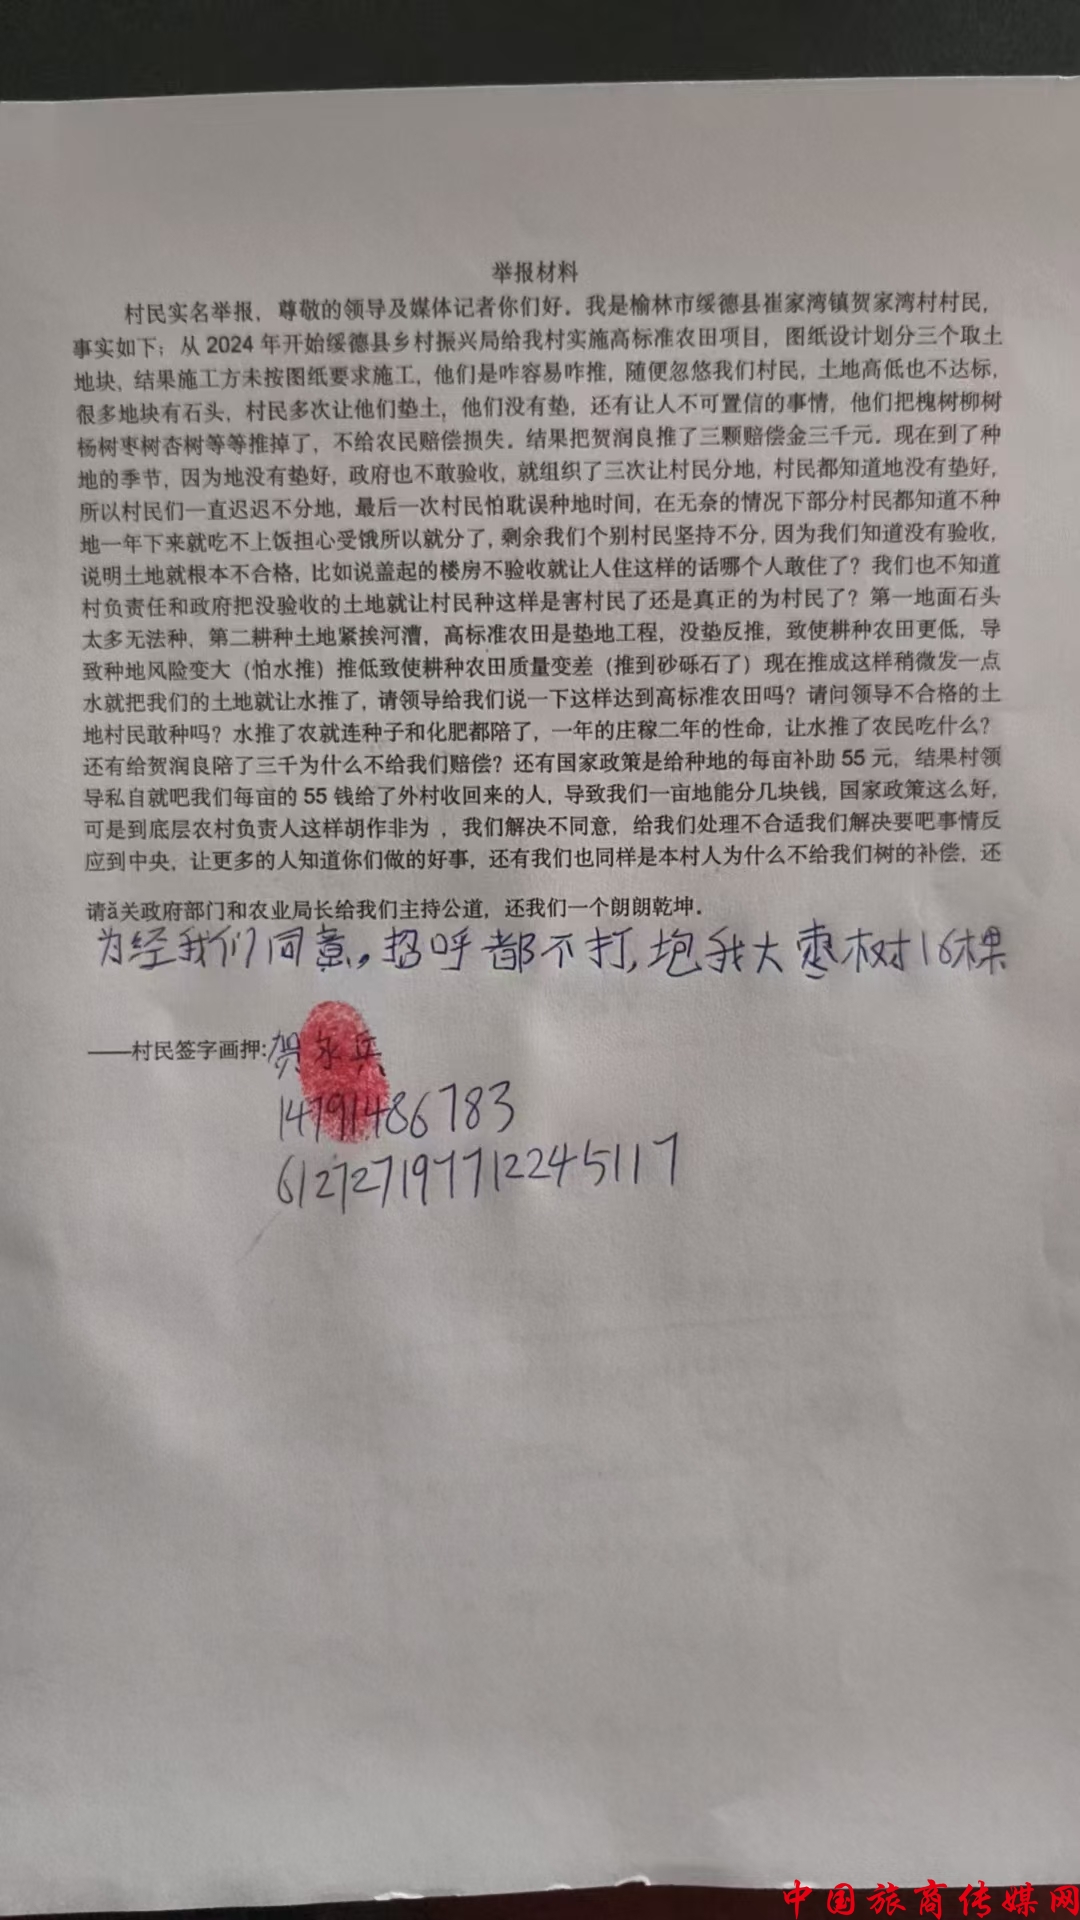 举报材料
村民实名举报，尊敬的领导及媒体记者你们好．我是榆林市绥德县崔家湾镇贺家湾村村民，
事实如下；从 2024 年开始绥德县乡村振兴局给我村实施高标准农田项目，图纸设计划分三个取土
地块、结果施工方未按图纸要求施工，他们是咋容易咋推，随便忽悠我们村民，土地高低也不达标，
很多地块有石头，村民多次让他们垫土，他们没有垫，还有让人不可置信的事情，他们把槐树柳树
杨树枣树杏树等等推掉了，不给农民赔偿损失．结果把贺润良推了三颗赔偿金三千元．现在到了种
地的季节，因为地没有垫好，政府也不敢验收，就组织了三次让村民分地，村民都知道地没有垫好，
所以村民们一直迟迟不分地，最后一次村民怕耽误种地时间，在无奈的情况下部分村民都知道不种
地一年下来就吃不上饭担心受饿所以就分了，剩余我们个别村民坚持不分，因为我们知道没有验收，
说明土地就根本不合格，比如说盖起的楼房不验收就让人住这样的话哪个人敢住了？我们也不知道
村负责任和政府把没验收的土地就让村民种这样是害村民了还是真正的为村民了？第一地面石头
太多无法种，第二耕种土地紧挨河漕，高标准农田是垫地工程，没垫反推，致使耕种农田更低，导
致种地风险变大（怕水推）推低致使耕种农田质量变差（推到砂砾石了）现在推成这样稍微发一点
水就把我们的土地就让水推了，请领导给我们说一下这样达到高标准农田吗？请问领导不合格的土
地村民敢种吗？水推了农就连种子和化肥都陪了，一年的庄稼二年的性命，让水推了农民吃什么？
还有给贺润良陪了三千为什么不给我们赔偿？还有国家政策是给种地的每亩补助 55 元，结果村领
导私自就吧我们每亩的 55 钱给了外村收回来的人，导致我们一亩地能分几块钱，国家政策这么好，
可是到底层农村负责人这样胡作非为 ，我们解决不同意，给我们处理不合适我们解决要吧事情反
应到中央，让更多的人知道你们做的好事，还有我们也同样是本村人为什么不给我们树的补偿，还
请ǎ关政府部门和农业局长给我们主持公道，还我们一个朗朗乾坤．
为经我们同意，招呼都不打，垉我大枣树16棵
——村民签字画押:贺永兵
14791486783
612727197712245117
中国旅商传媒网